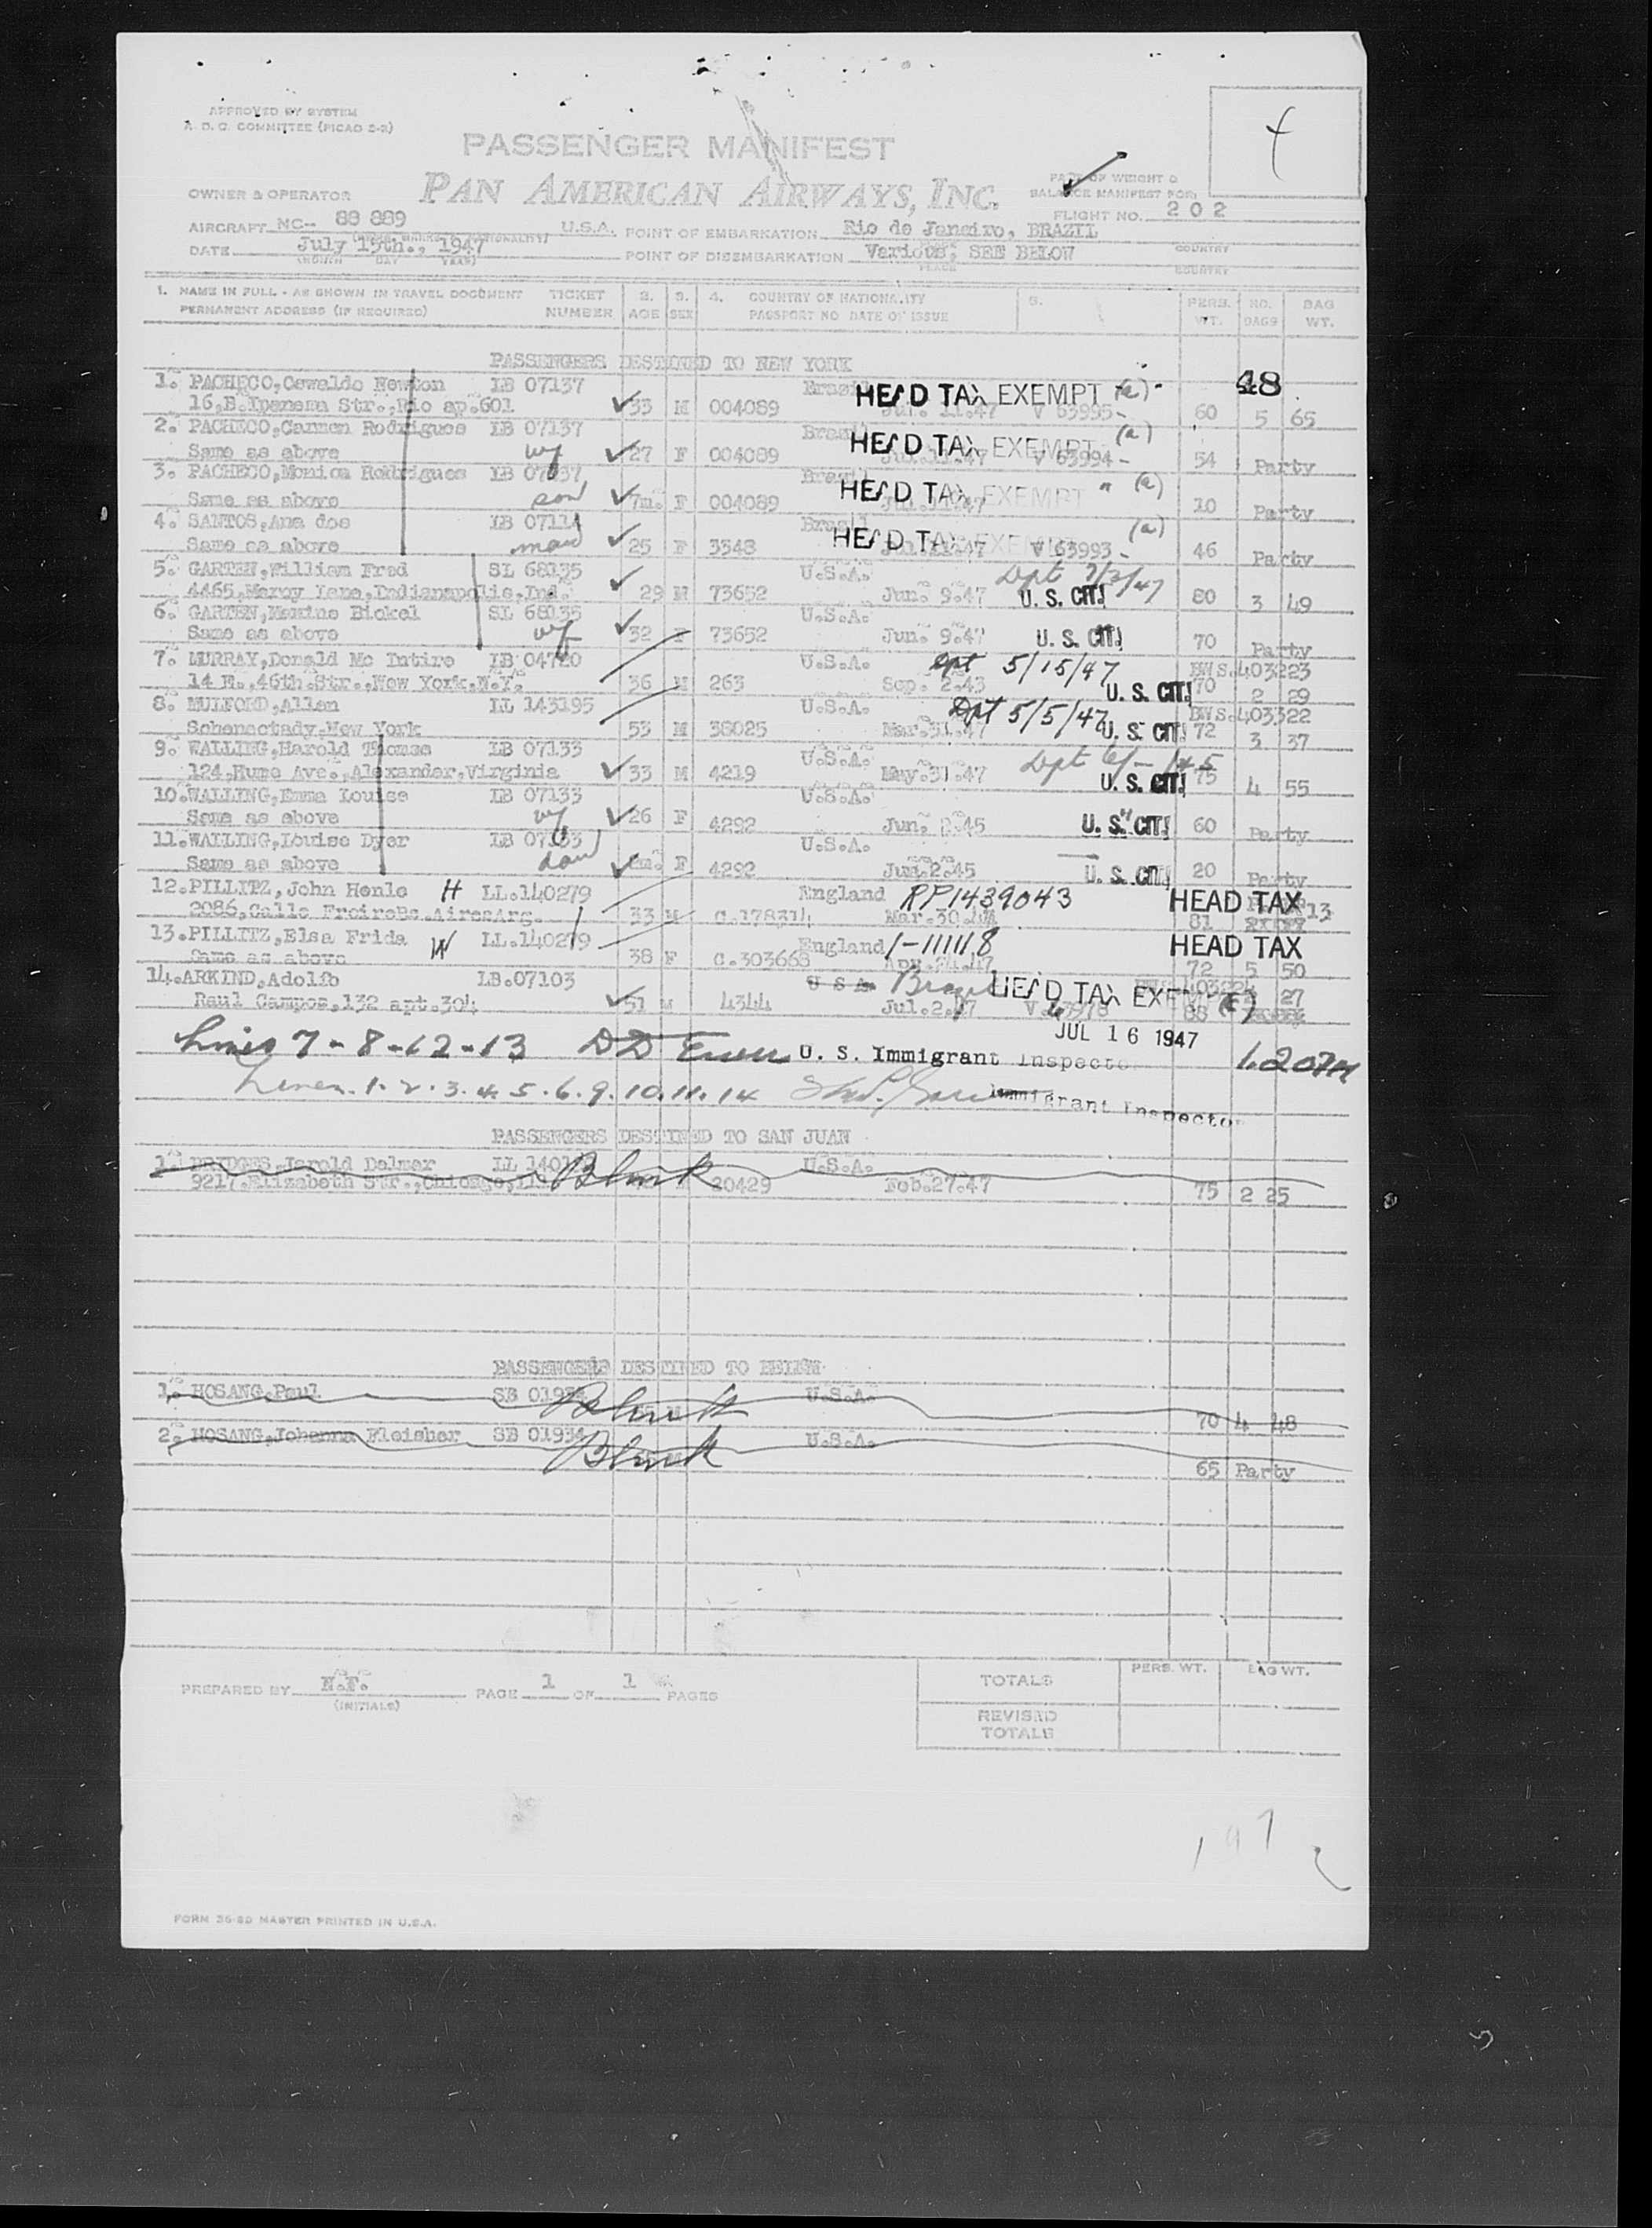 4
APPROVED BY SYSTEM
A. D. C. COMMITTEE (PICAO 2-2)
PASSENGER MANIFEST
OWNER & OPERATOR PAN AMERICAN AIRWAYS, INC.
PART OF WEIGHT &
BALANCE MANIFEST FOR
FLIGHT NO. 202
AIRCRAFT NC-- 88 889 U.S.A. POINT OF EMBARKATION Rio de Janeiro, BRAZIL
DATE July 15th., 1947 POINT OF DISEMBARKATION Various, SEE BELOW
(MONTH DAY YEAR) PLACE COUNTRY
1. NAME IN FULL - AS SHOWN IN TRAVEL DOCUMENT TICKET 2. 3. 4. COUNTRY OF NATIONALITY 5. PERS. NO. BAG
PERMANENT ADDRESS (IF REQUIRED) NUMBER AGE SEX PASSPORT NO DATE OF ISSUE WT. BAGS WT.
PASSENGERS DESTINED TO NEW YORK
1. PACHECO,Oswaldo Newton LB 07137 Brasil HEAD TAX EXEMPT (a) 48
16,B.Ipanema Str.,Rio ap.601 33 M 004089 Jul. 11.47 V 63995- 60 5 65
2. PACHECO,Carmen Rodrigues LB 07137 Brasil HEAD TAX EXEMPT (a)
Same as above wf 27 F 004089 Jul.11.47 V 63994- 54 Party
3. PACHECO,Monica Rodrigues LB 07137 Brasil HEAD TAX EXEMPT " (a)
Same as above 7m. F 004089 Jul.11.47 10 Party
4. SANTOS,Ana dos LB 07114 Brasil HEAD TAX EXEMPT (a)
Same as above maid 25 F 3548 Jul.11.47 V 63993- 46 Party
5. GARTEN,William Fred SL 68135 U.S.A. Dpt 7/3/47
4465,Marcy Lane,Indianapolis,Ind. 29 M 73652 Jun. 9.47 U. S. CIT. 80 3 49
6. GARTEN,Maxine Bickel SL 68135 U.S.A.
Same as above wf 32 F 73652 Jun. 9.47 U. S. CIT. 70 Party
7. MURRAY,Donald Mc Intire LB 04720 U.S.A. Dpt 5/15/47 BWS.403223
14 E.,46th.Str.,New York,N.Y. 36 M 263 Sep. 2.43 U. S. CIT. 70 2 29
8. MULFORD,Allan LL 143195 U.S.A. Dpt 5/5/47 BWS.403322
Schenectady,New York 53 M 38025 Mar.31.47 U. S. CIT. 72 3 37
9. WALLING,Harold Thomas LB 07133 U.S.A. Dpt 6/-/45
124,Hume Ave.,Alexander,Virginia 33 M 4219 May.31.47 U. S. CIT. 75 4 55
10.WALLING,Emma Louise LB 07133 U.S.A.
Same as above wf 26 F 4292 Jun. 2.45 U. S. CIT. 60 Party
11.WALLING,Louise Dyer LB 07133 U.S.A.
Same as above dau F 4292 Jun.2.45 U. S. CIT. 20 Party
12.PILLITZ,John Henle H LL.140279 England RP1439043 HEAD TAX
2086,Calle FreireBs.AiresArg. 33 M C.178314 Mar.30. 81 13
13.PILLITZ,Elsa Frida W LL.140279 England 1-111118 HEAD TAX
Same as above 38 F C.303668 Apr. .47 72 5 50
14.ARKIND,Adolfo LB.07103 U S A Brazil HEAD TAX EXEMPT 403224
Raul Campos,132 apt.304 51 M 4344 Jul.2.47 88 27
JUL 16 1947
Lines 7-8-12-13 U. S. Immigrant Inspector 1.20PM
Lines.1.2.3.4.5.6.9.10.11.14 Immigrant Inspector
PASSENGERS DESTINED TO SAN JUAN
1. BRIDGES,Jarold Delmar LL 1401 Blank U.S.A.
9217.Elizabeth Str.,Chicago,Ill 20429 Feb.27.47 75 2 25
PASSENGERS DESTINED TO BELEM
1. HOSANG,Paul SB 01934 Blank U.S.A.
M 70 4 48
2. HOSANG,Johanna Fleisher SB 01934 Blank U.S.A.
65 Party
PREPARED BY N.F. PAGE 1 OF 1 PAGES
(INITIALS)
PERS. WT. BAG WT.
TOTALS
REVISED
TOTALS
197
FORM 36-80 MASTER PRINTED IN U.S.A.